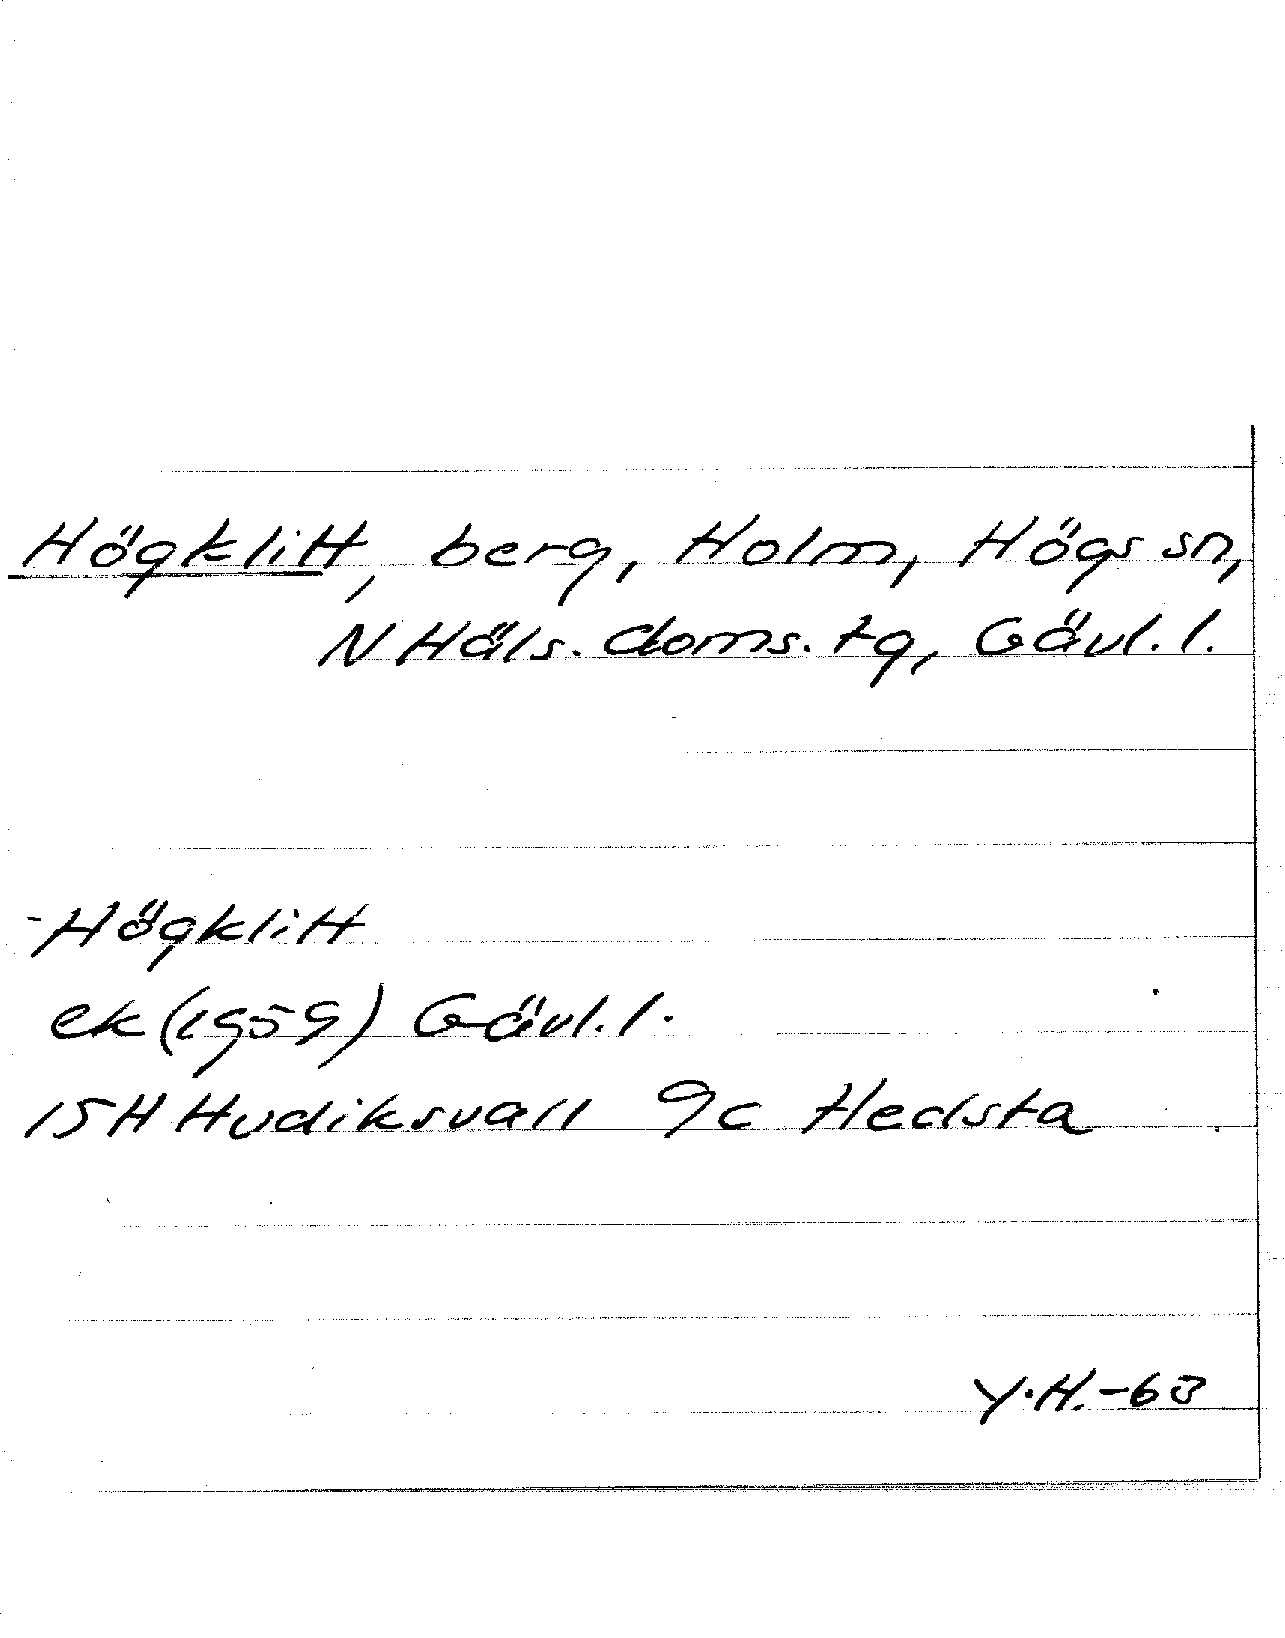 Högklitt, berg, Holm, Högs sn,
N Häls. doms. tg, Gävl. l.
-Högklitt
ek (1959) Gävl. l.
15H Hudiksvall 9c Hedsta
Y.H.-63